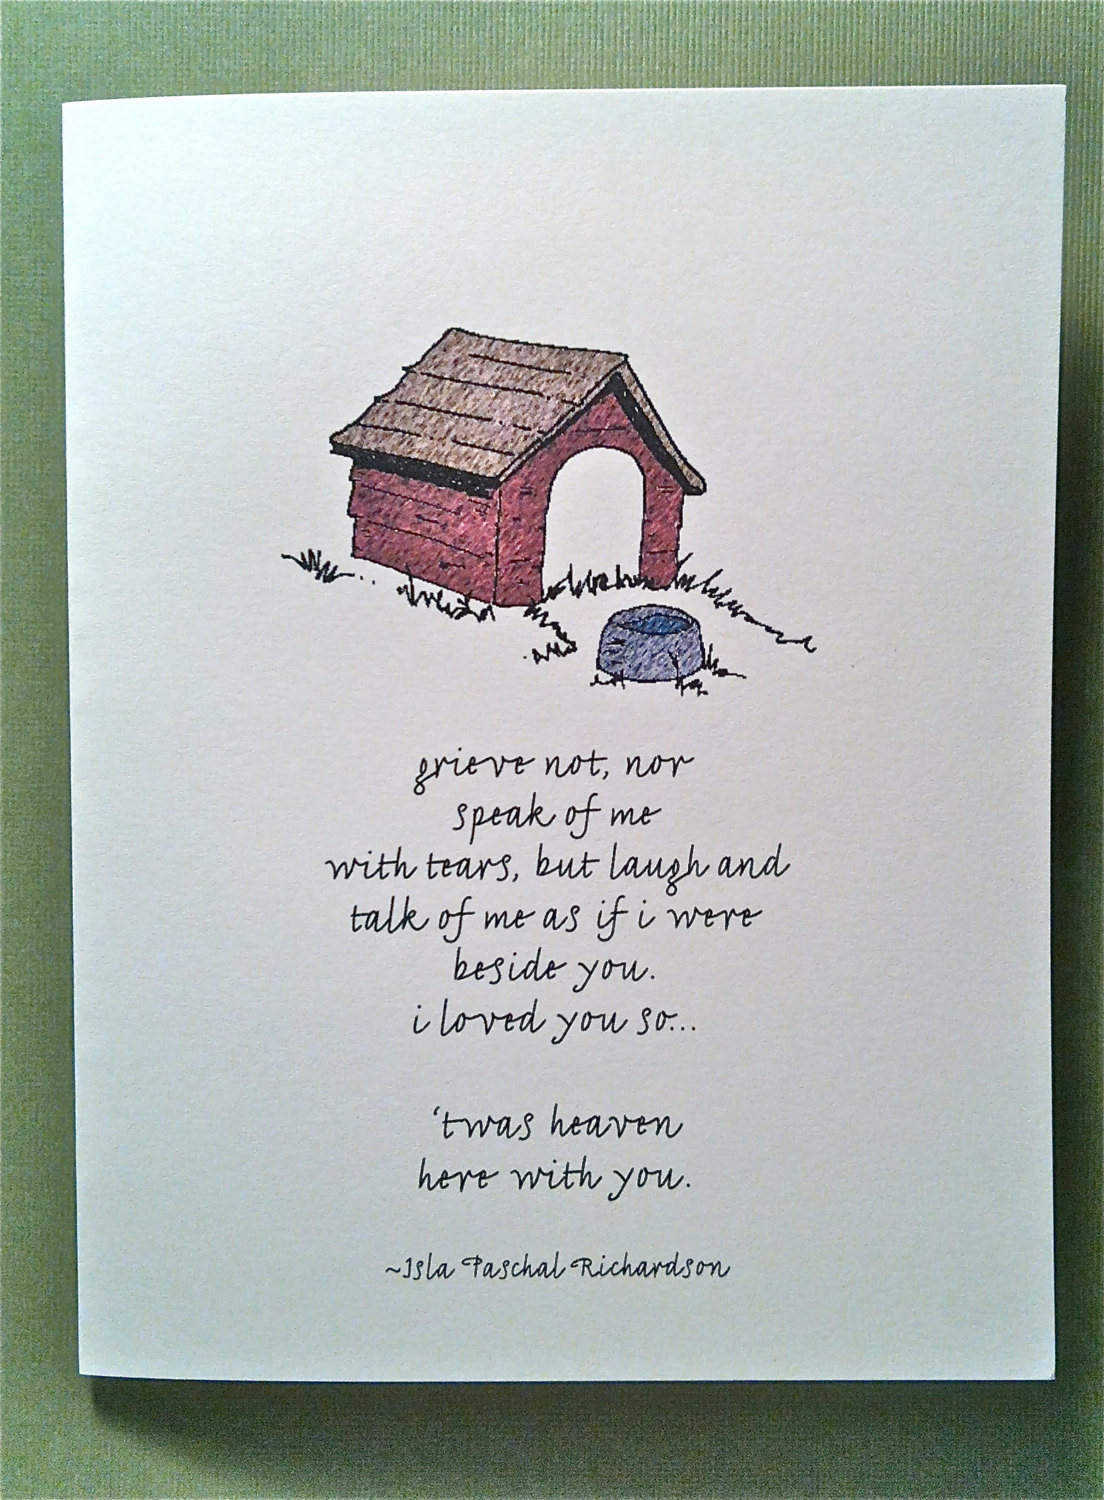 grieve not, nor
speak of me
with tears, but laugh and
talk of me as if i were
beside you.
i loved you so...
'twas heaven
here with you.
~Isla Paschal Richardson